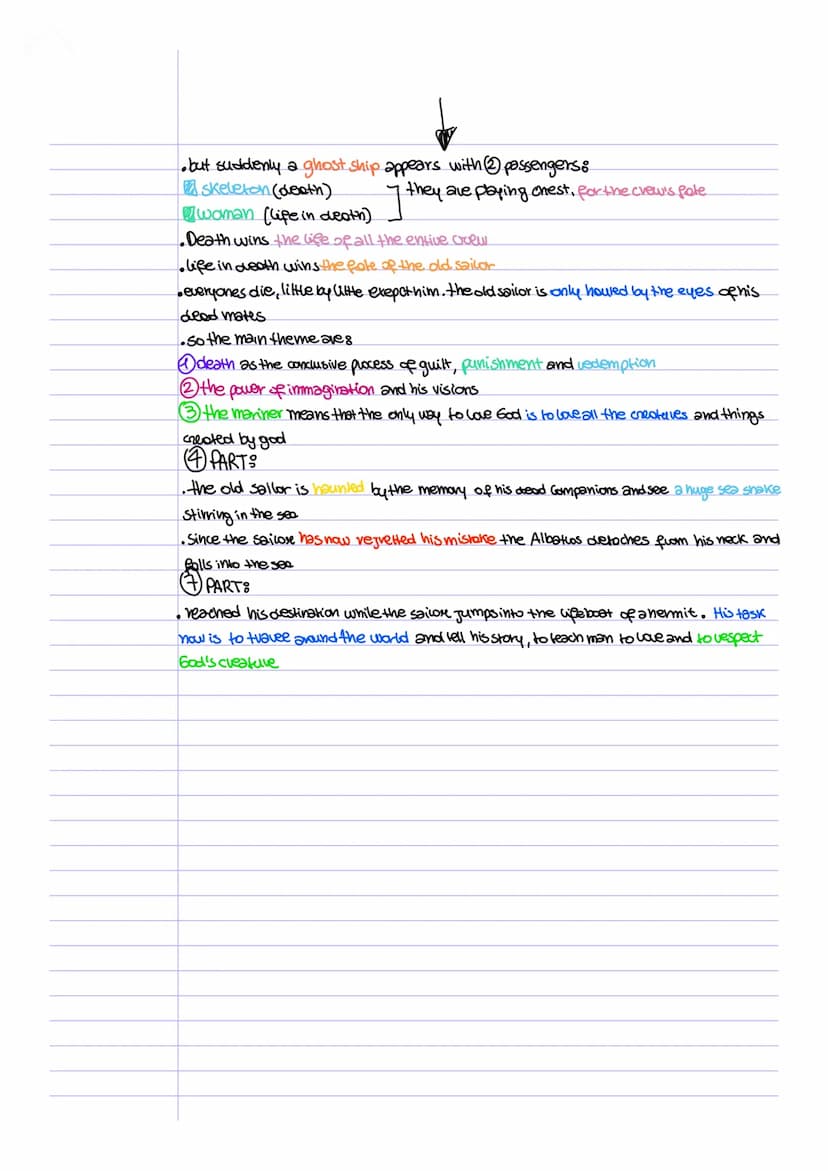 .but suddenly a ghost ship appears with ② passengers:
skeleton (death) they are playing chest, for the crew's fate
woman (life in death)
.Death wins the life of all the entire crew
.life in death wins the fate of the old sailor
.everyones die, little by little exepct him. the old sailor is only howed by the eyes of his
dead mates
.so the main theme are:
① death as the conclusive process of guilt, punishment and redemption
② the power of immagination and his visions
③ the mariner means that the only way to love God is to love all the creatures and things
created by god
④ PART:
.the old sailor is haunted by the memory of his dead companions and see a huge sea snake
stirring in the sea
.Since the sailore has now regretted his mistake the Albatros detaches from his neck and
falls into the sea
⑦ PART:
. reached his destination while the sailore jumps into the lifeboat of a hermit. His task
now is to travee around the world and tell his story, to teach man to love and to respect
God's creature